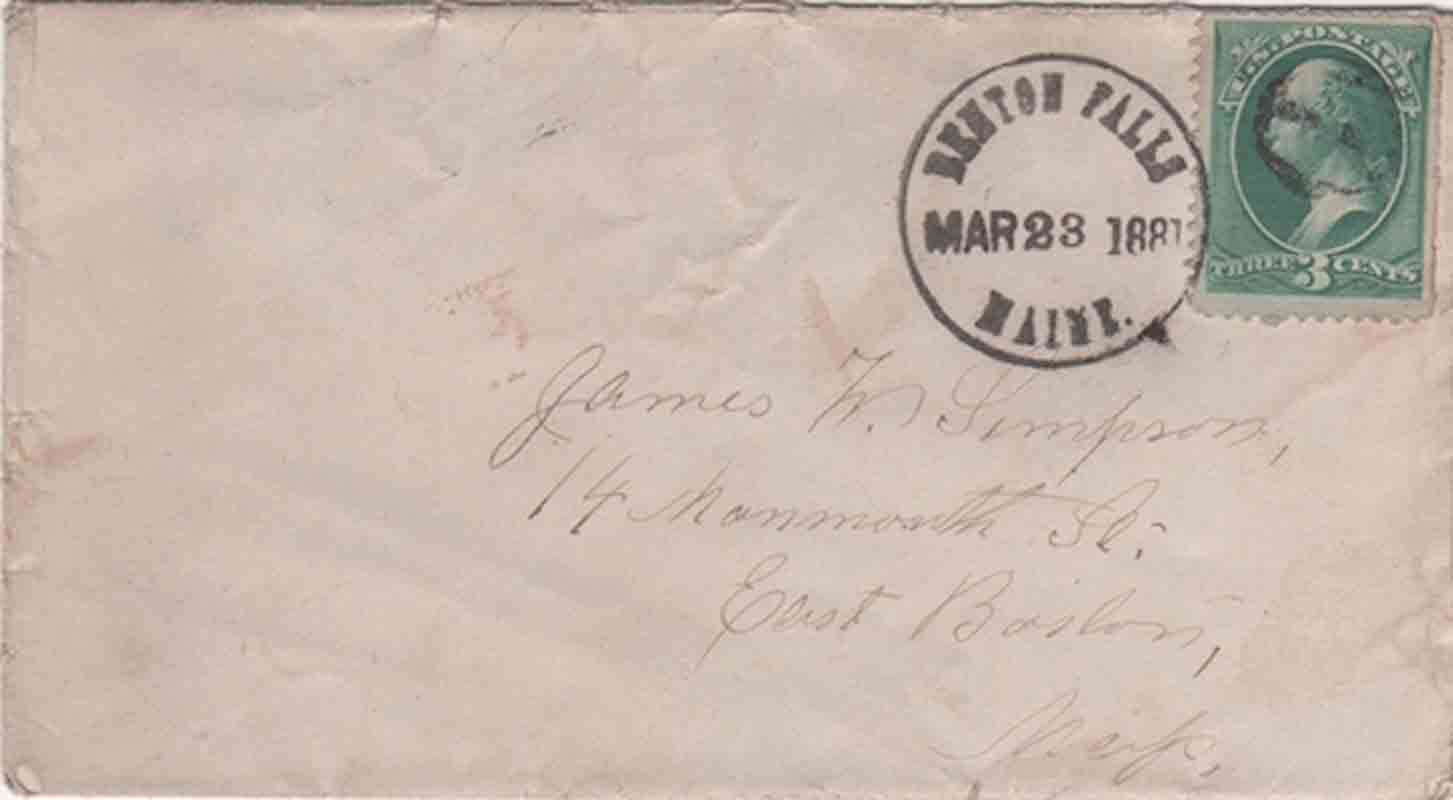 U.S. POSTAGE
THREE 3 CENTS
BENTON FALLS
MAR 23 1881
MAINE.
James W. Simpson,
14 Monmouth St.
East Boston,
Mass.